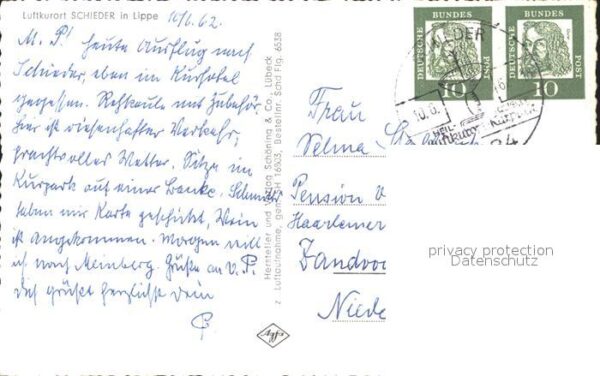 Luftkurort SCHIEDER in Lippe
10/6.62.
M. P! Heute Ausflug nach
Schieder, eben im Kurhotel
gegessen. Rehkeule mit Zubehör.
Hier ist riesenhafter Verkehr,
prachtvolles Wetter. Sitze im
Kurpark auf einer Banke.
haben mir Karte geschickt, Wein
ist angekommen. Morgen will
ich nach Meinberg. Grüße an V. P.
Dich grüßt herzlichst Dein
Hersteller und Verlag Schöning & Co., Lübeck
Luftaufnahme, gen. SH 16503, Bestellnr. Schd Flg. 6538
Agfa
DEUTSCHE BUNDES POST
10
DEUTSCHE BUNDES POST
10
Frau
Selma
Pension
Haarlemer
Zandvoo
Niede
privacy protection
Datenschutz